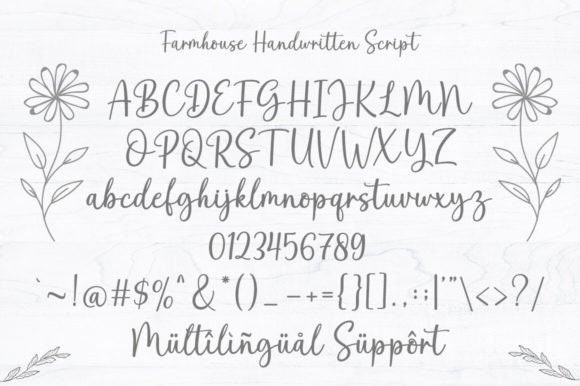 Farmhouse Handwritten Script
ABCDEFGHIJKLMN
OPQRSTUVWXYZ
abcdefghijklmnopqrstuvwxyz
0123456789
`~!@#$%^&*()_-+={}[].,:;|'"\<>?/
Mültîlìñgüål Süppôrt